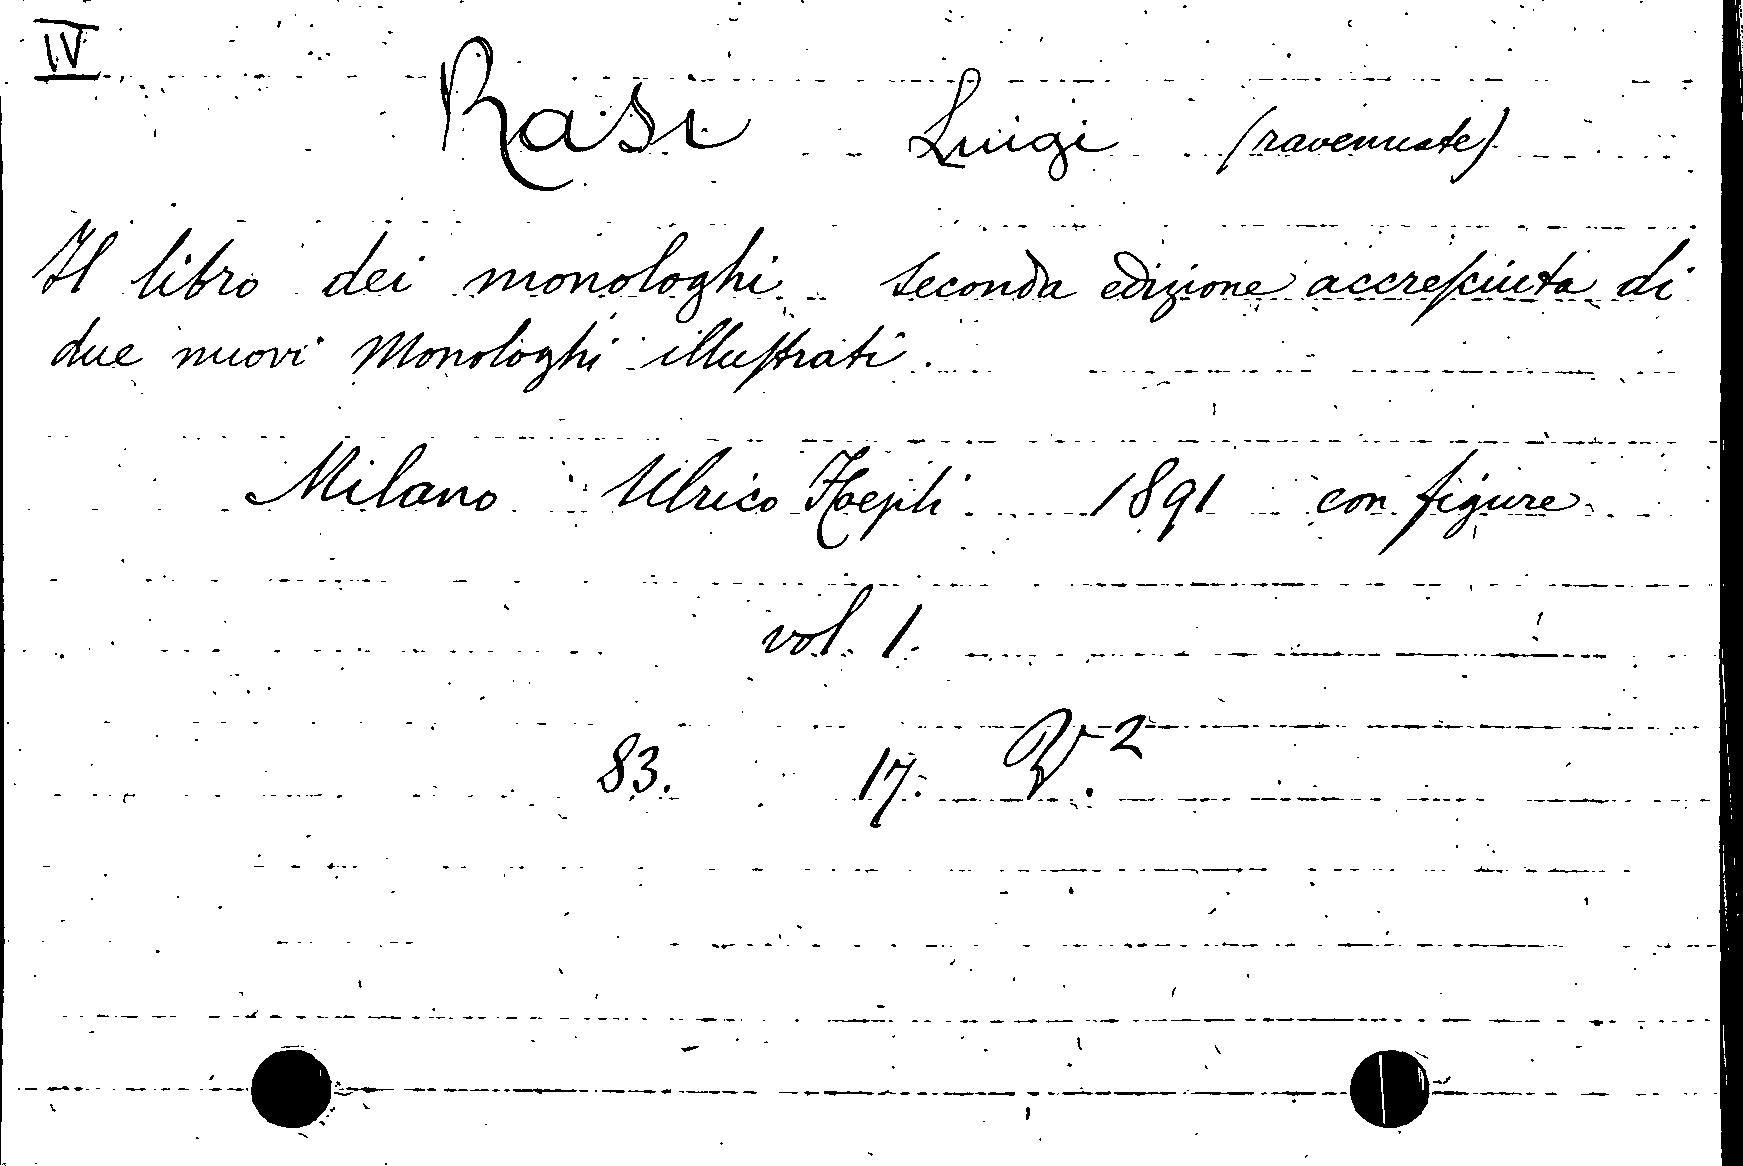 IV
Rasi Luigi (ravennate)
Il libro dei monologhi. Seconda edizione accresciuta di
due nuovi Monologhi illustrati.
Milano Ulrico Hoepli. 1891 con figure
vol. 1.
83. 17.